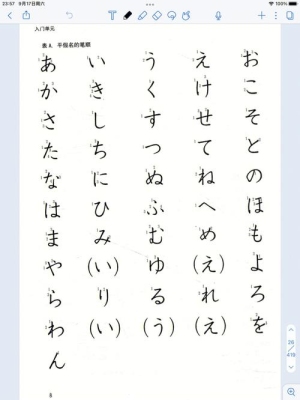 23:57 9月17日周六
100%
入门单元
表 A. 平假名的笔顺
あ い う え お
か き く け こ
さ し す せ そ
た ち つ て と
な に ぬ ね の
は ひ ふ へ ほ
ま み む め も
や (い) ゆ (え) よ
ら り る れ ろ
わ (い) (う) (え) を
ん
26
/
419
8